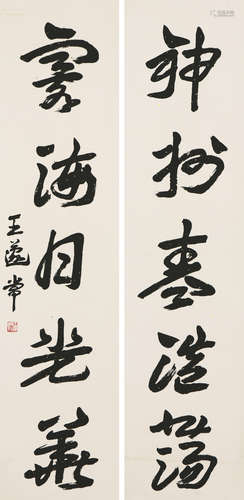 神州春浩蕩
寰海日光華
王蘧常